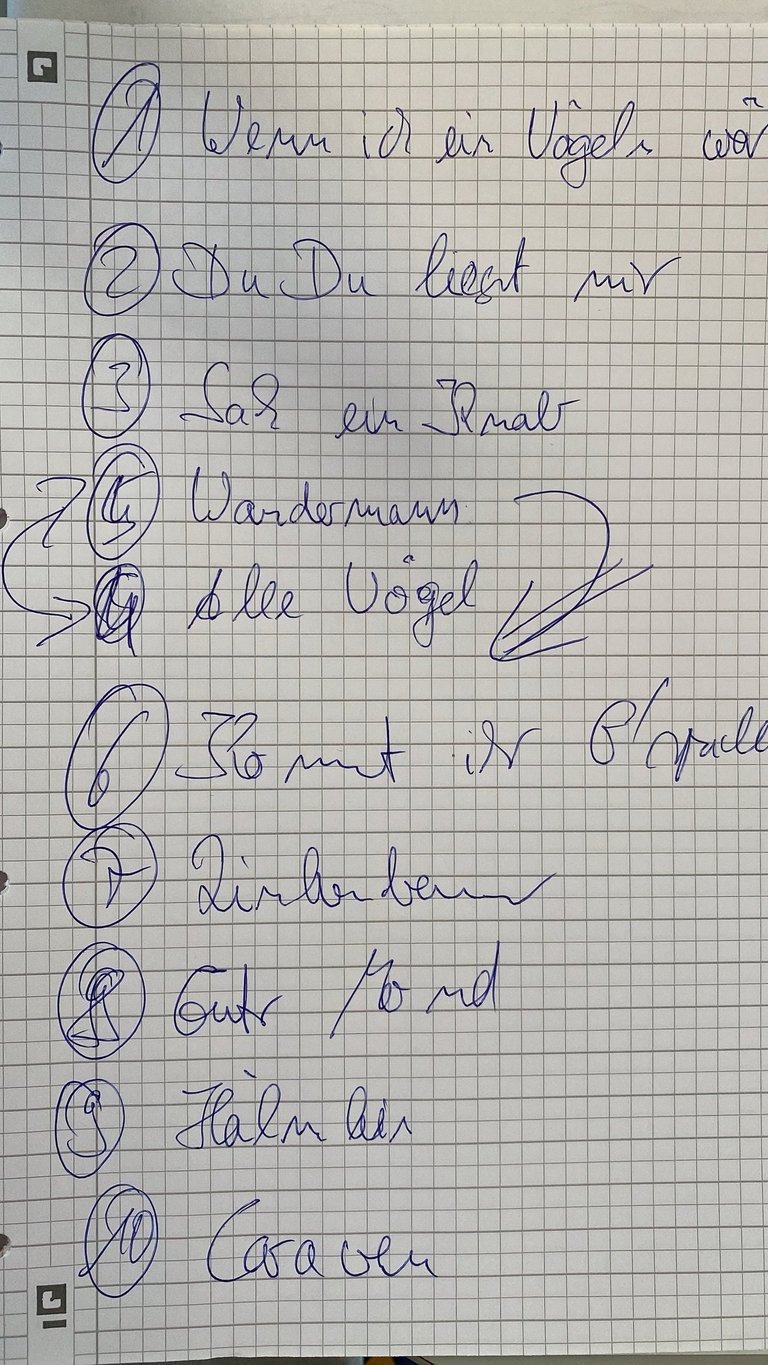 1 Wenn ich ein Vögeln wär
2 Du Du liegst mir
3 Sah ein Knab
5 Wandermann
4 Alle Vögel
6 Kommt ihr G'spiel
7
8 Gutr Mond
9 Hälmlein
10 Caravan